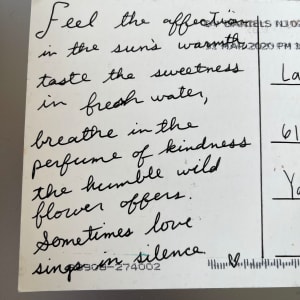 Feel the affection
in the sun's warmth
taste the sweetness
in fresh water,
breathe in the
perfume of kindness
the humble wild
flower offers.
Sometimes love
sings in silence
DANIELS NJ 07
MAR 2020 PM
La
61
Ya
274002